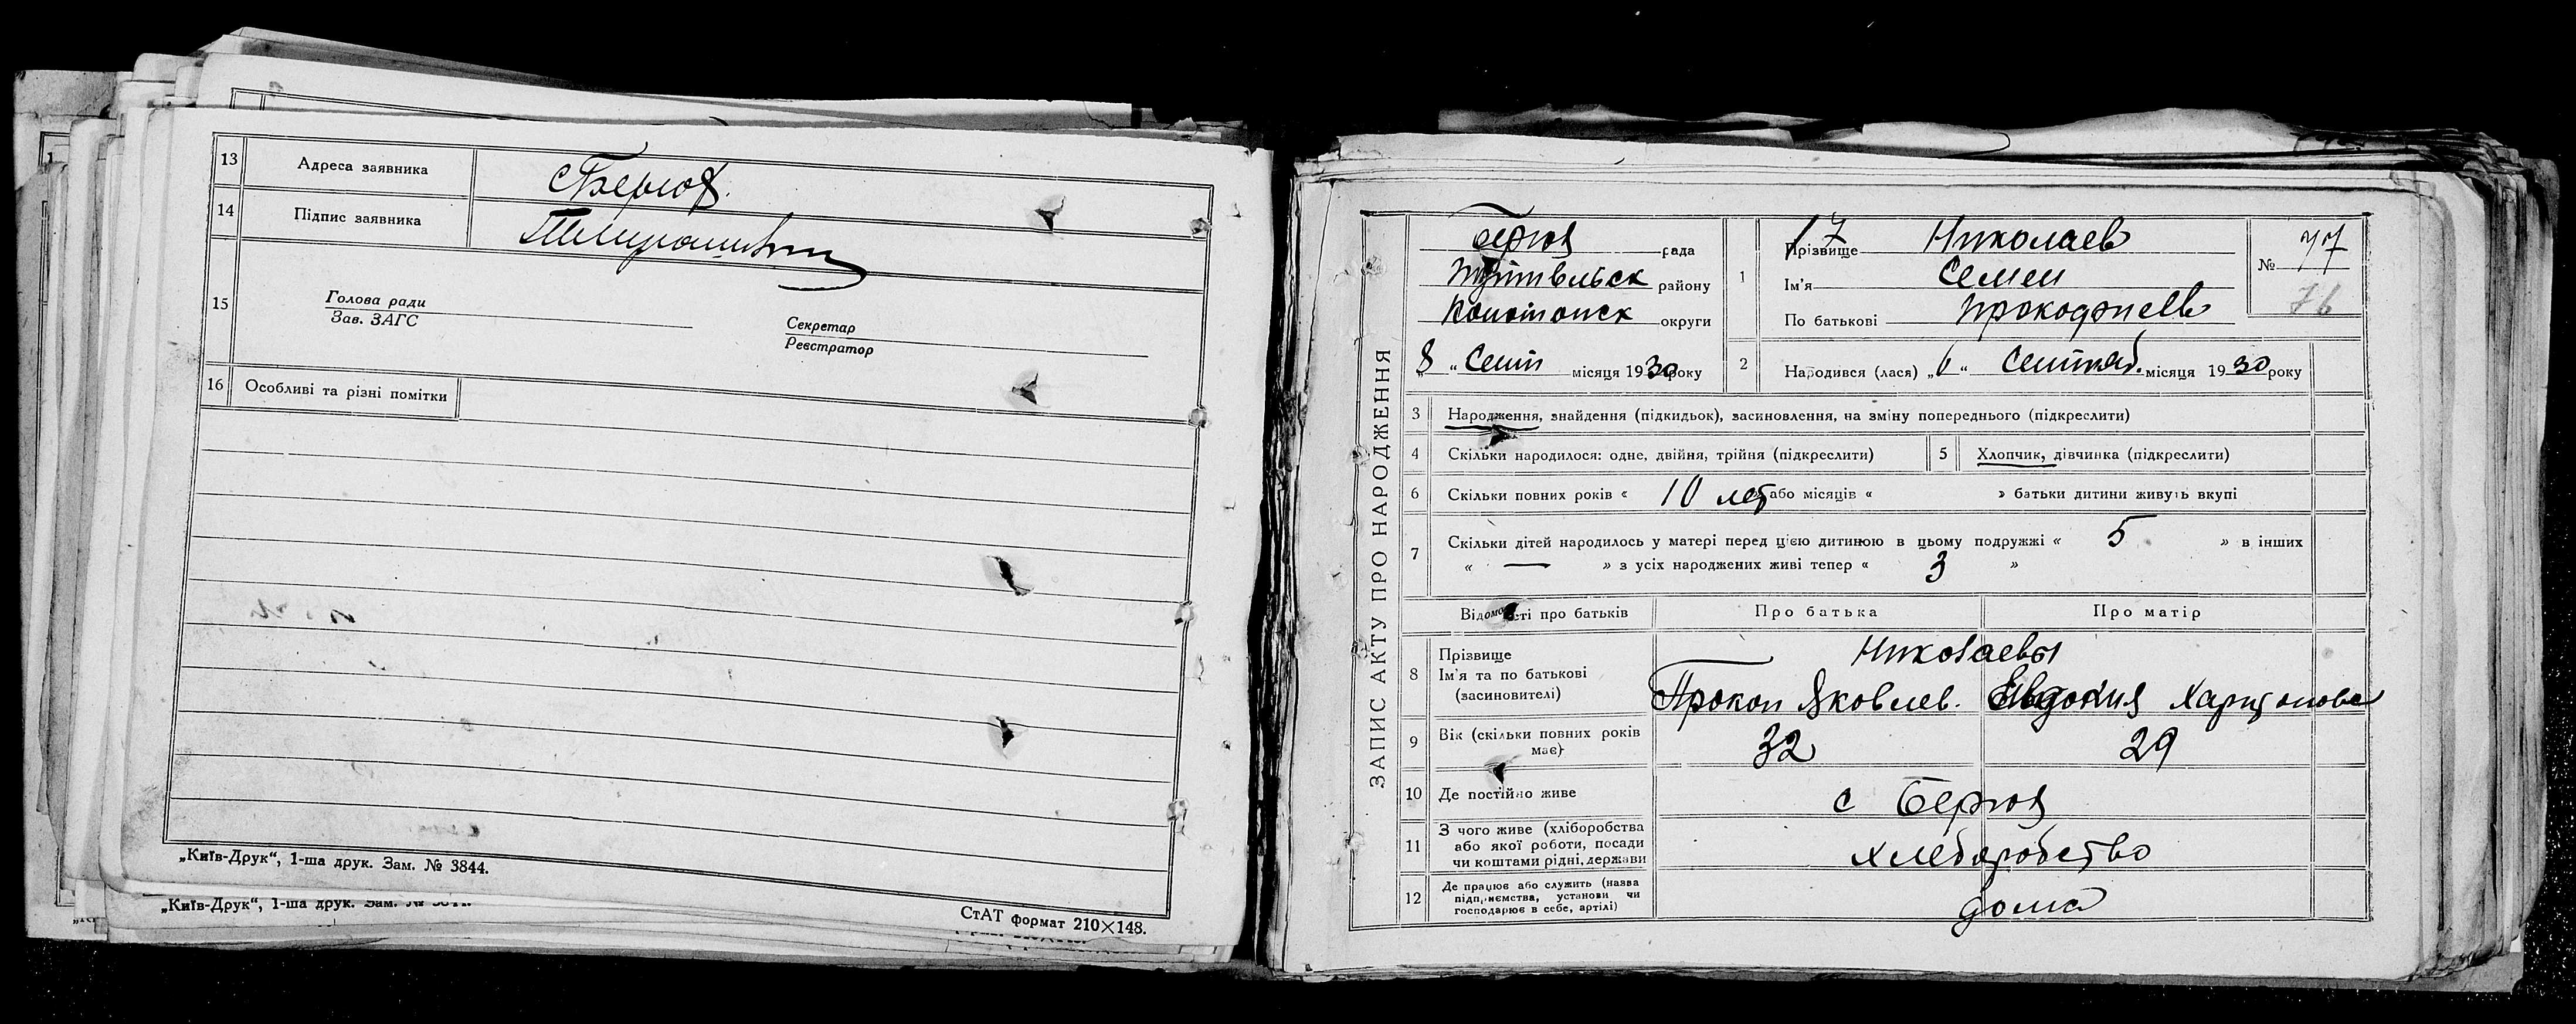 13 Адреса заявника с Берюх
14 Підпис заявника
15 Голова ради
Зав. ЗАГС
Секретар
Реєстратор
16 Особливі та різні помітки
„Київ-Друк“, 1-ша друк. Зам. № 3844.
„Київ-Друк“, 1-ша друк. Зам. №
СтАТ формат 210×148.
ЗАПИС АКТУ ПРО НАРОДЖЕННЯ
Берюх рада
Путивльск району
Конотопск округи
„8“ Сент місяця 1930 року
17
1 Прізвище Николаев
Ім'я Семен
По батькові Прокофиев
№ 77
76
2 Народився (лася) „6“ Сентяб. місяця 1930 року
3 Народження, знайдення (підкидьок), засиновлення, на зміну попереднього (підкреслити)
4 Скільки народилося: одне, двійня, трійня (підкреслити)
5 Хлопчик, дівчинка (підкреслити)
6 Скільки повних років « 10 лет » або місяців « » батьки дитини живуть вкупі
7 Скільки дітей народилось у матері перед цією дитиною в цьому подружжі « 5 » в інших
« — » з усіх народжених живі тепер « 3 »
Відомості про батьків Про батька Про матір
8 Прізвище Николаевы
Ім'я та по батькові Прокоп Яковлев. Евдокия Харитонова
(засиновителі)
9 Вік (скільки повних років має) 32 29
10 Де постійно живе с Берюх
11 З чого живе (хліборобства
або якої роботи, посади
чи коштами рідні, держави хлеборобство
12 Де працює або служить (назва
підприємства, установи чи
господарює в себе, артілі) дома